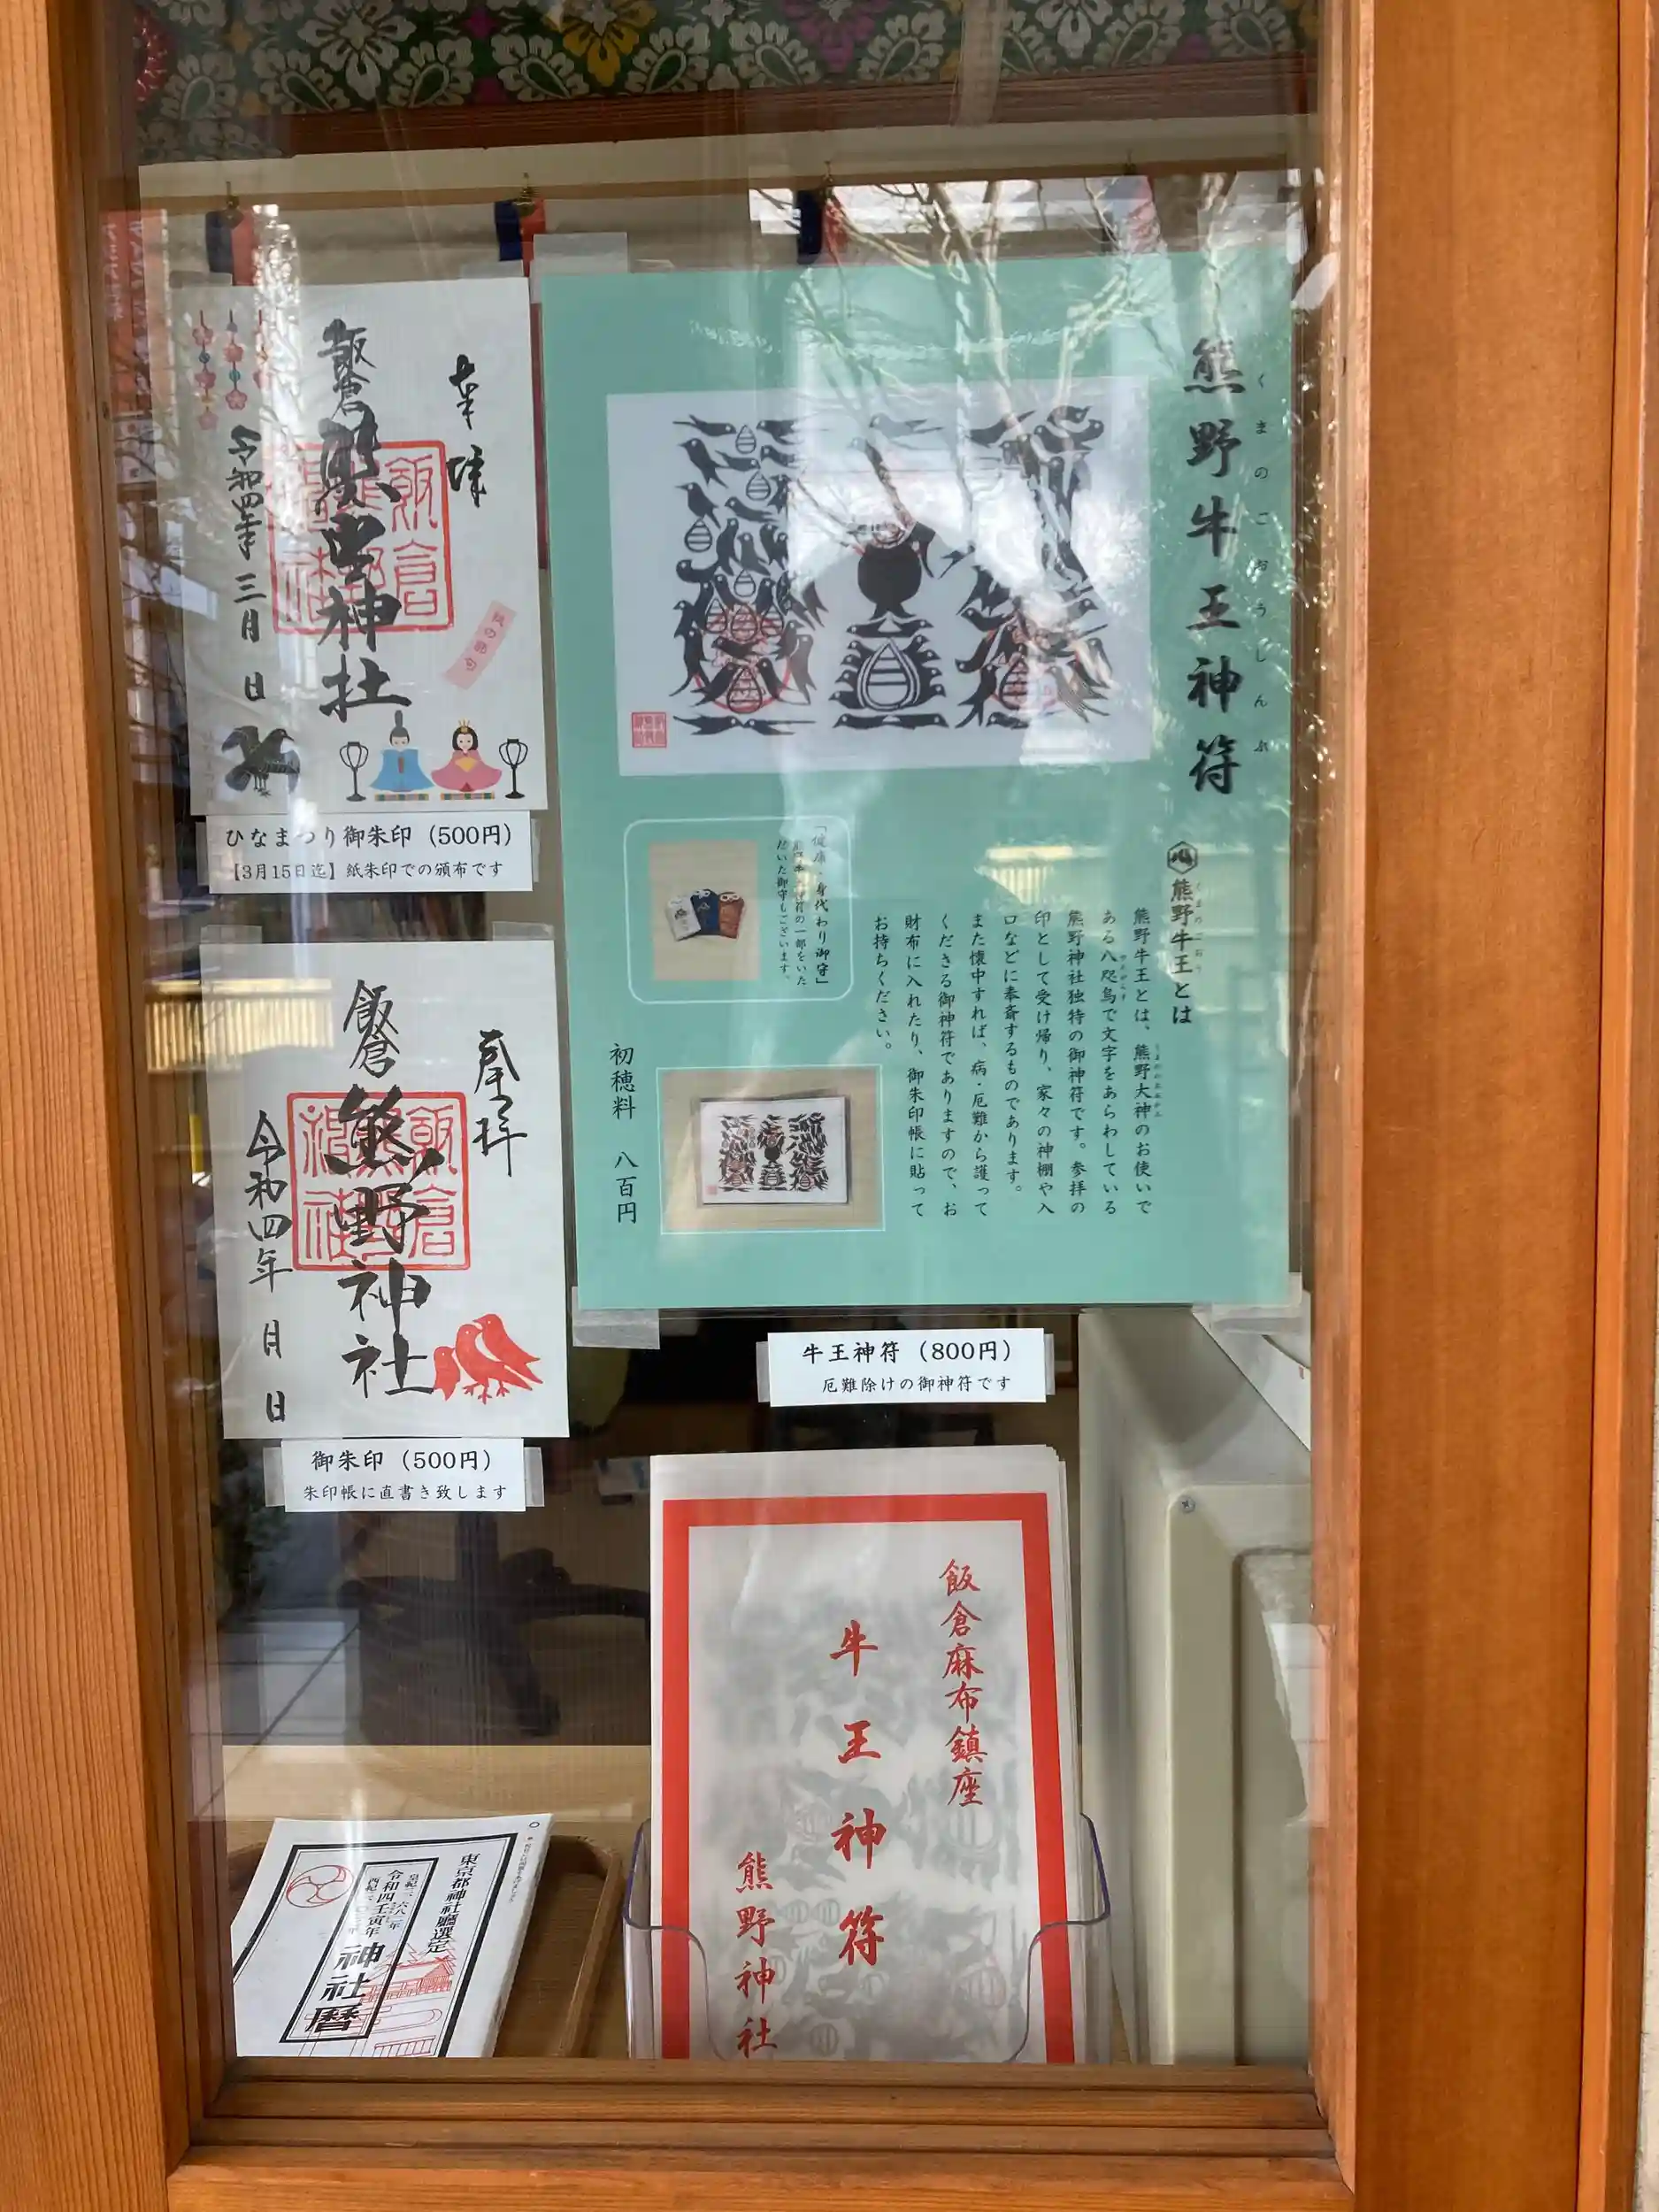 奉拝
飯倉
熊野神社
令和四年三月　日
桃の節句
ひなまつり御朱印（500円）
【3月15日迄】紙朱印での頒布です
奉拝
飯倉
熊野神社
令和四年　月　日
御朱印（500円）
朱印帳に直書き致します
熊野牛王神符
くまのごおうしんぷ
熊野牛王とは
熊野牛王とは、熊野大神のお使いで
ある八咫烏で文字をあらわしている
熊野神社独特の御神符です。参拝の
印として受け帰り、家々の神棚や入
口などに奉斎するものであります。
また懐中すれば、病・厄難から護って
くださる御神符でありますので、お
財布に入れたり、御朱印帳に貼って
お持ちください。
「健康・身代わり御守」
の一部をいた
だいた御守もございます。
初穂料　八百円
牛王神符（800円）
厄難除けの御神符です
飯倉麻布鎮座
牛王神符
熊野神社
東京都神社廳選定
令和四壬寅年
神社暦